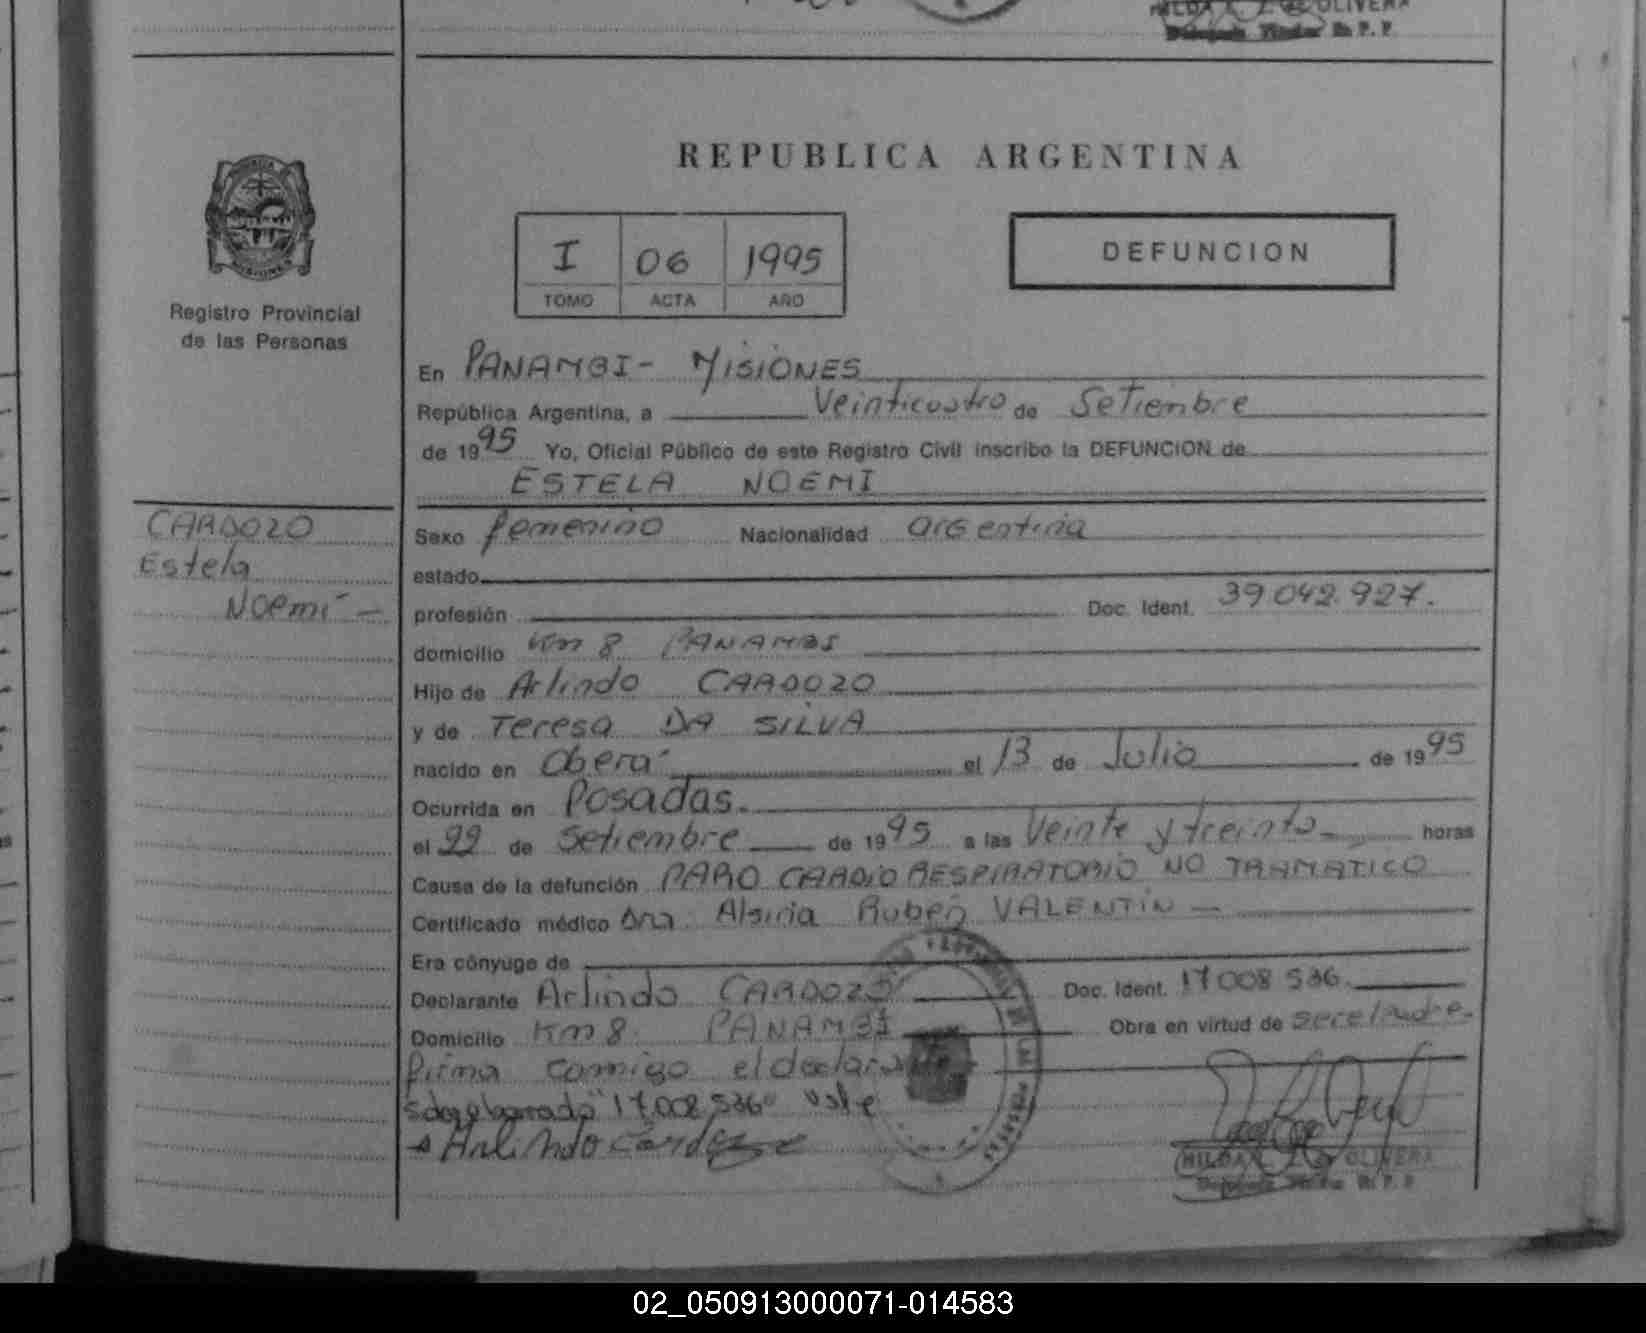 HILDA OLIVERA
REPUBLICA ARGENTINA
I 06 1995
TOMO ACTA AÑO
DEFUNCION
Registro Provincial
de las Personas
En PANAMBI - MISIONES
República Argentina, a Veinticuatro de Setiembre
de 1995 Yo, Oficial Público de este Registro Civil inscribo la DEFUNCION de
ESTELA NOEMI
CARDOZO
Estela
Noemí -
Sexo femenino Nacionalidad argentina
estado
profesión Doc. Ident. 39 042.927.
domicilio Km 8 PANAMBI
Hijo de Arlindo CARDOZO
y de Teresa DA SILVA
nacido en Oberá el 13 de Julio de 1995
Ocurrida en Posadas.
el 22 de Setiembre de 1995 a las Veinte y treinta horas
Causa de la defunción PARO CARDIO RESPIRATORIO NO TRAMATICO
Certificado médico Dra. Rubén VALENTIN -
Era cónyuge de
Declarante Arlindo CARDOZO Doc. Ident. 17 008 536.
Domicilio Km 8. PANAMBI Obra en virtud de ser el padre.
firma conmigo el declarante
sobre borrado "17.008.536" vale
Arlindo Cardozo
HILDA OLIVERA
02_050913000071-014583